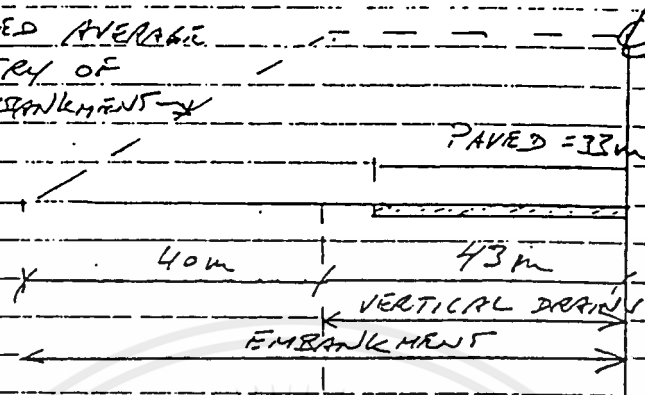 ED AVERAGE
TRY OF
BANKMENT
PAVED = 33m
40m
43m
VERTICAL DRAINS
EMBANKMENT